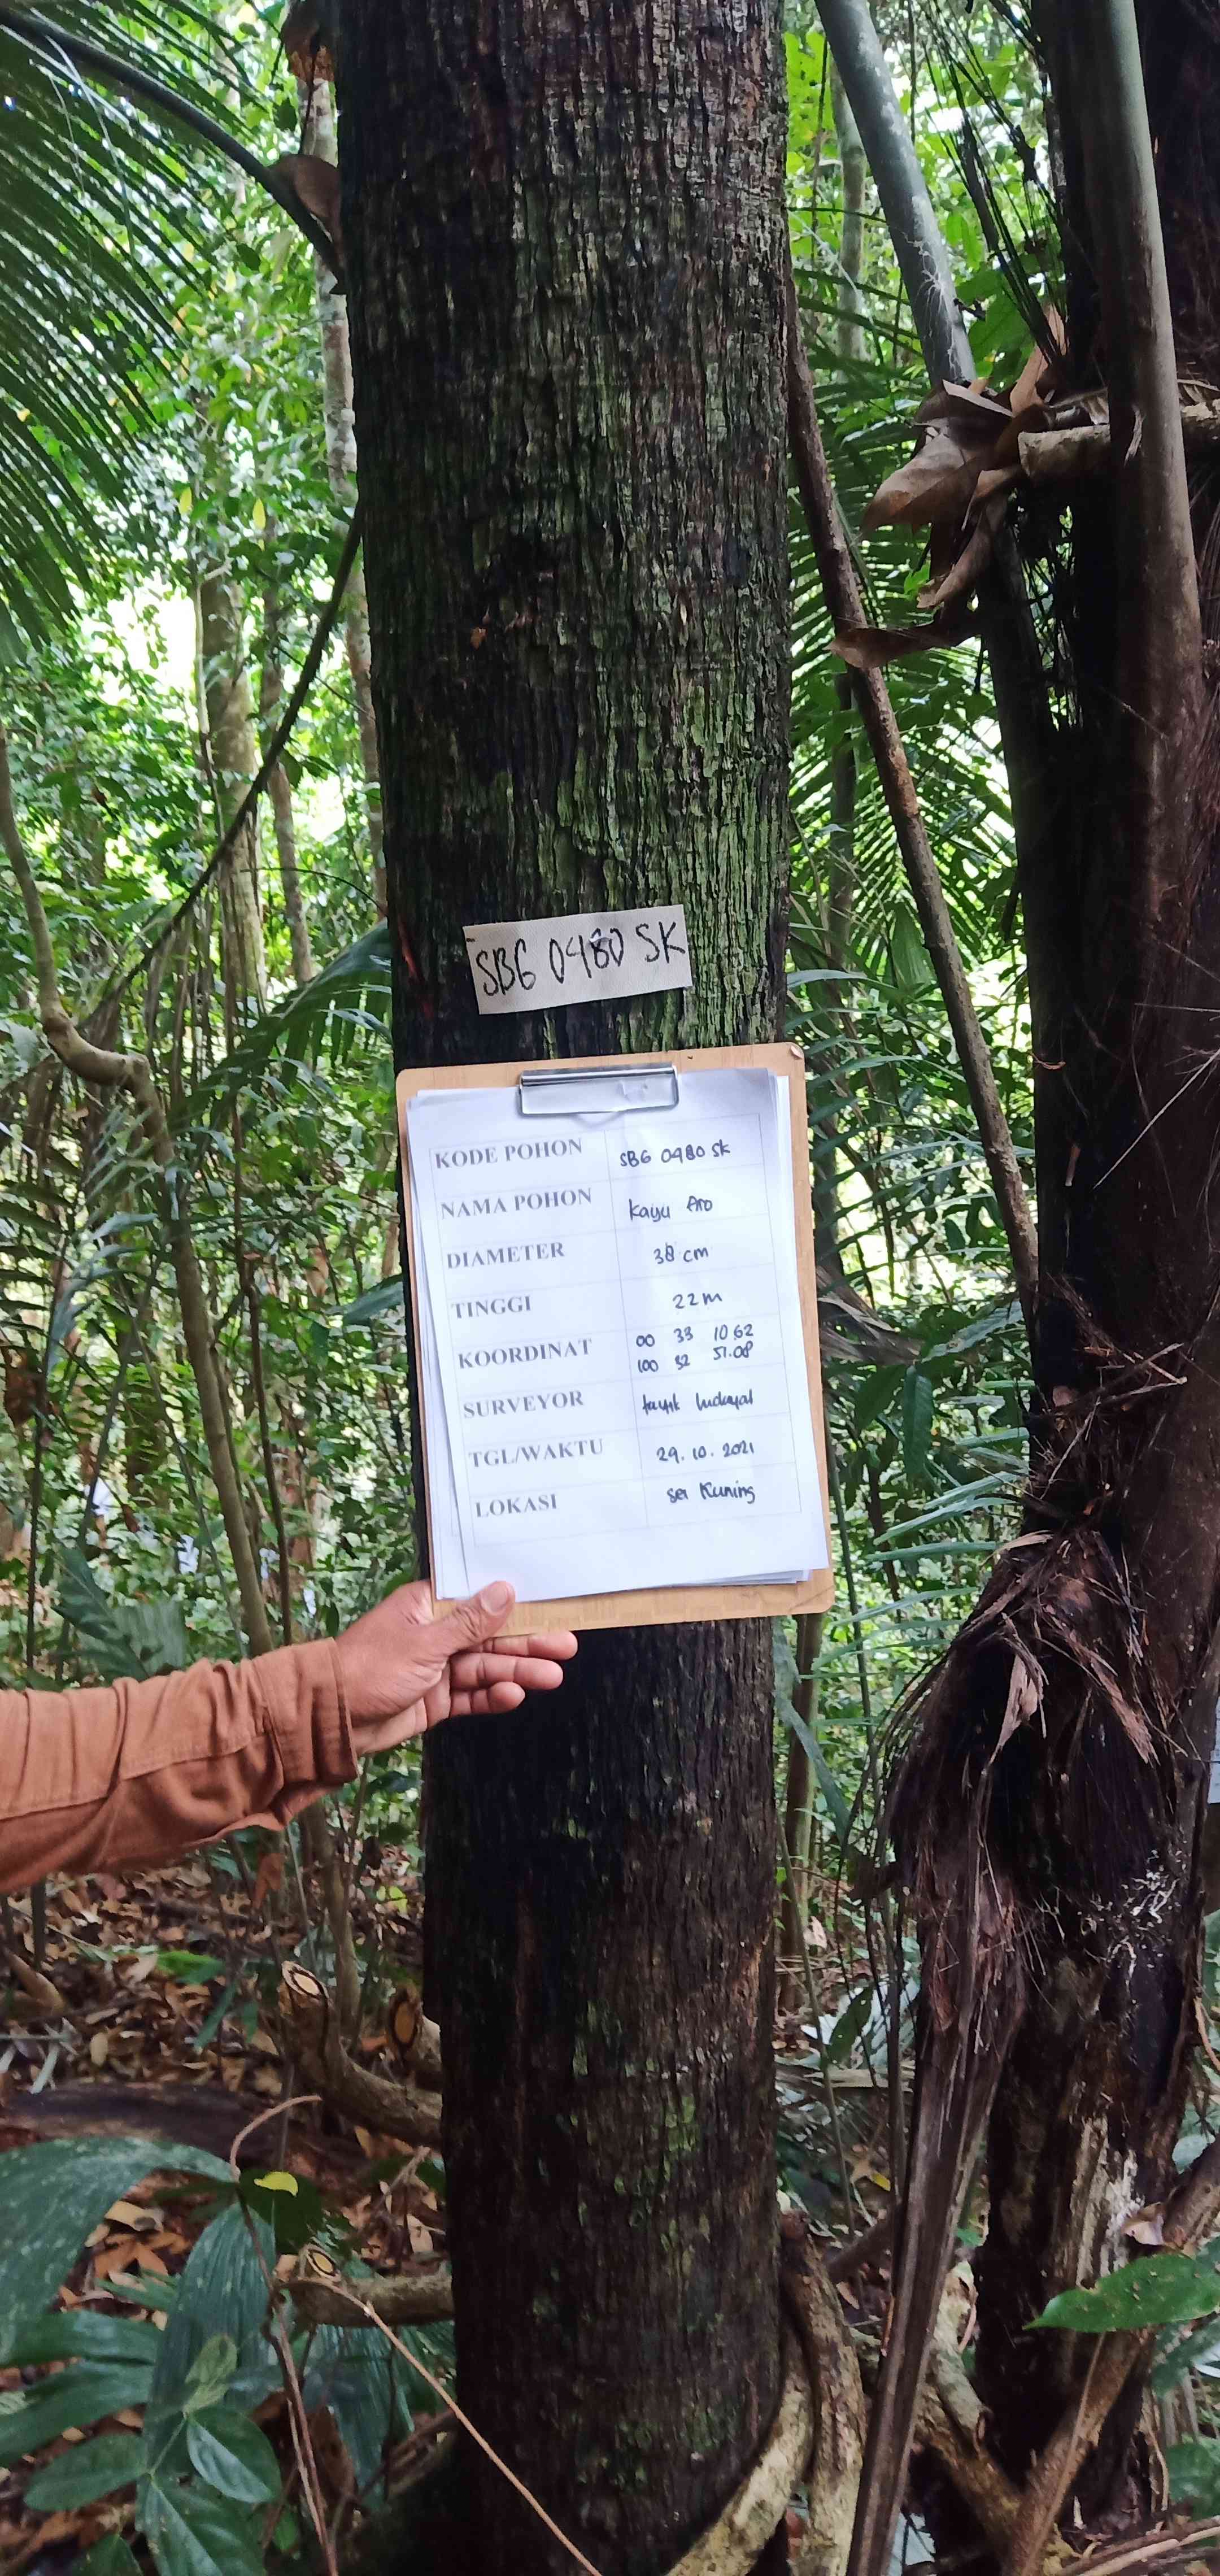 SBG 0480 SK
KODE POHON SBG 0480 SK
NAMA POHON kayu Aro
DIAMETER 38 cm
TINGGI 22 m
KOORDINAT 00 33 10 62
100 32 51.08
SURVEYOR taufik hidayat
TGL/WAKTU 29.10.2021
LOKASI sei Kuning